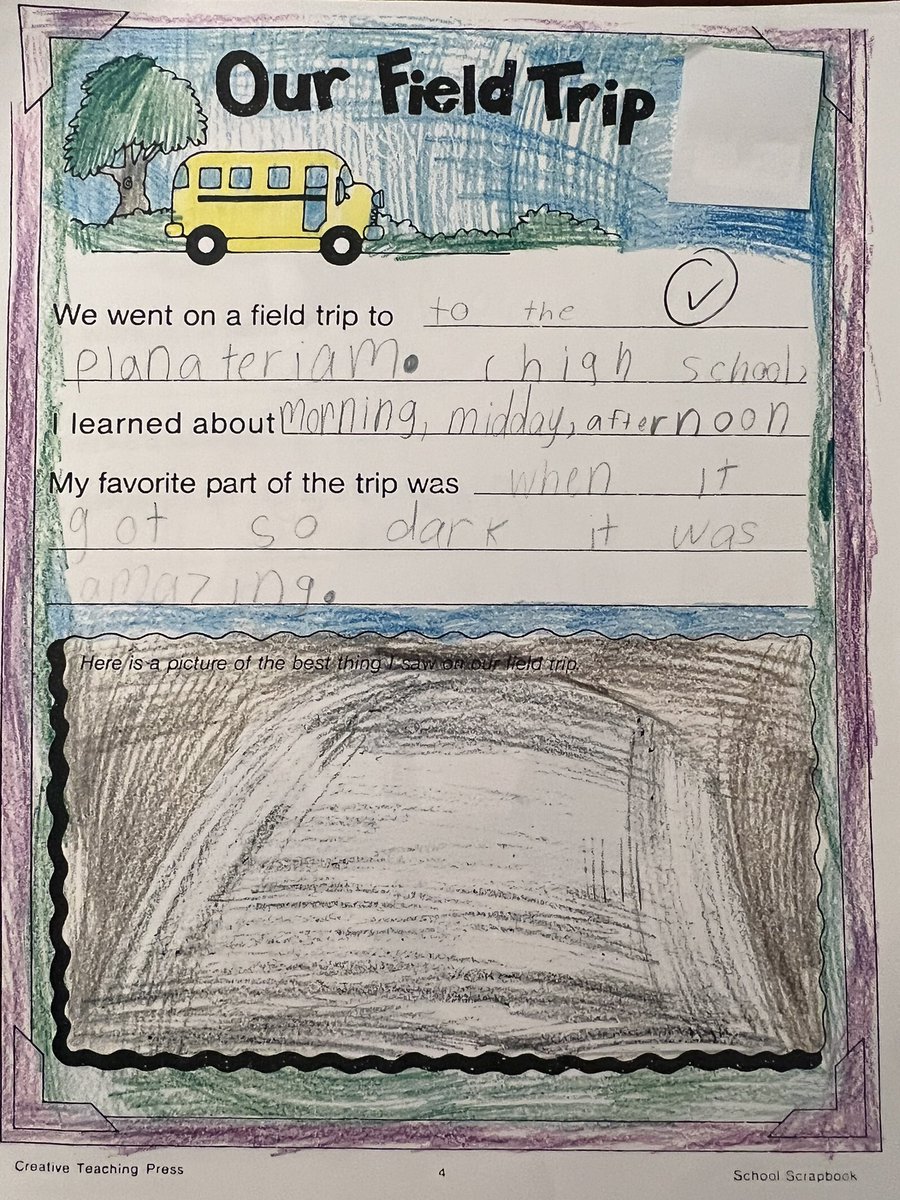 Our Field Trip
We went on a field trip to to the
planateriam. (high school)
I learned about morning, midday, afternoon
My favorite part of the trip was when it
got so dark it was
amazing.
Here is a picture of the best thing I saw on our field trip.
Creative Teaching Press 4 School Scrapbook